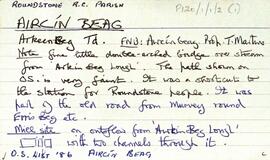 ROUNDSTONE R.C. PARISH
P120/1/1/2 (1)
AIRCÍN BEAG
Arkeen Beg Td. FNU: Aircín beag, Prof. T. Martin
Note fine little double-arched bridge over stream
from 'Airkin Beg Lough'. The path shown on
O.S. is very faint. It was a shortcut to
the station for Roundstone people. It was
part of the old road from Murvey round
Errisbeg etc.
Mill site on outflow from 'Airkin Beg Lough'
with two channels through it.
O.S. Nlft '86 AIRCÍN BEAG